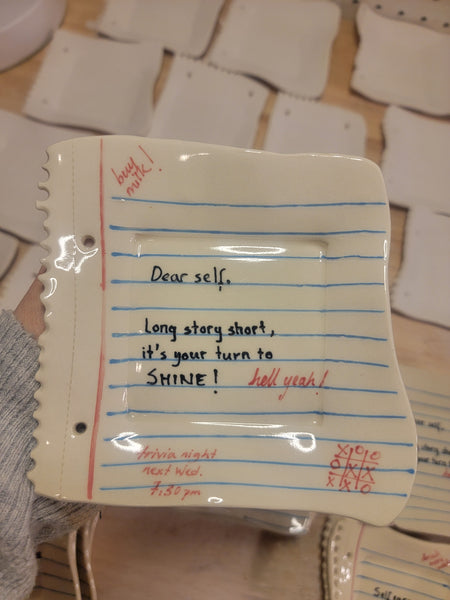 buy
milk!
Dear self,
Long story short,
it's your turn to
SHINE!
hell yeah!
trivia night
next Wed.
7.30 pm
X O O
O X X
X X O